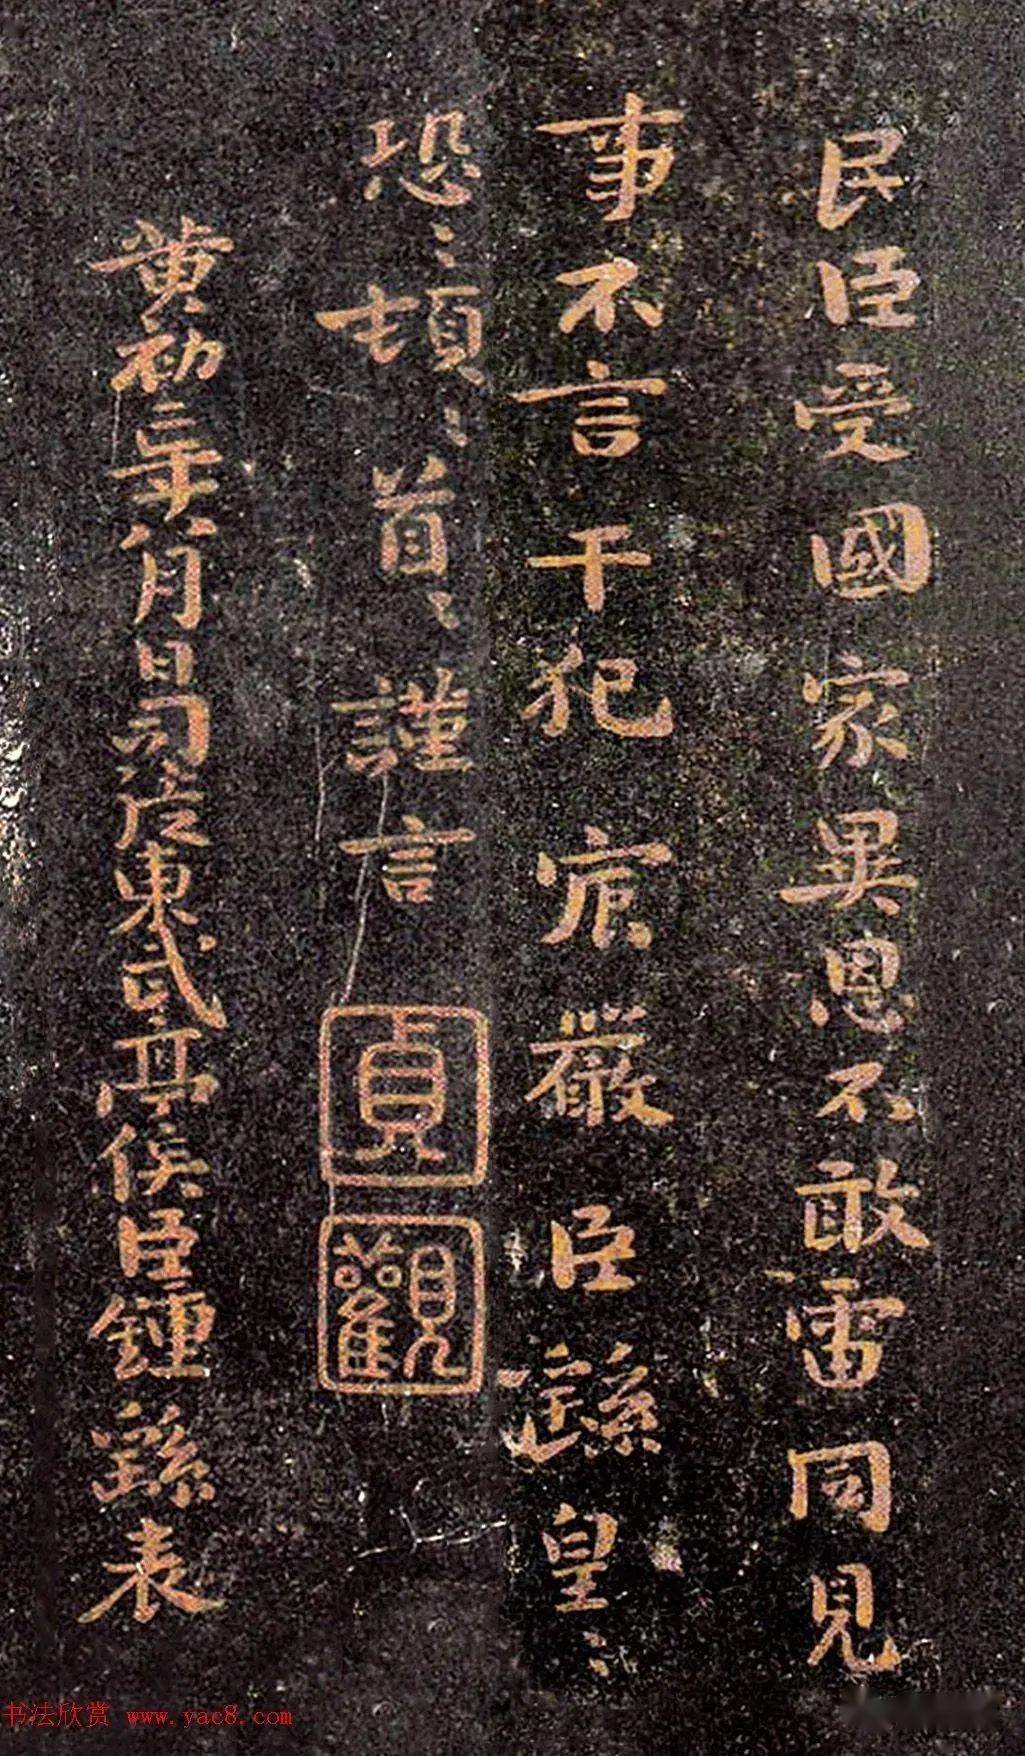 民臣受國家異恩不敢雷同見
事不言干犯宸嚴臣繇皇〻
恐〻頓〻首〻謹言
貞
觀
黃初二年八月日司徒東武亭侯臣鍾繇表
书法欣赏 www.yac8.com